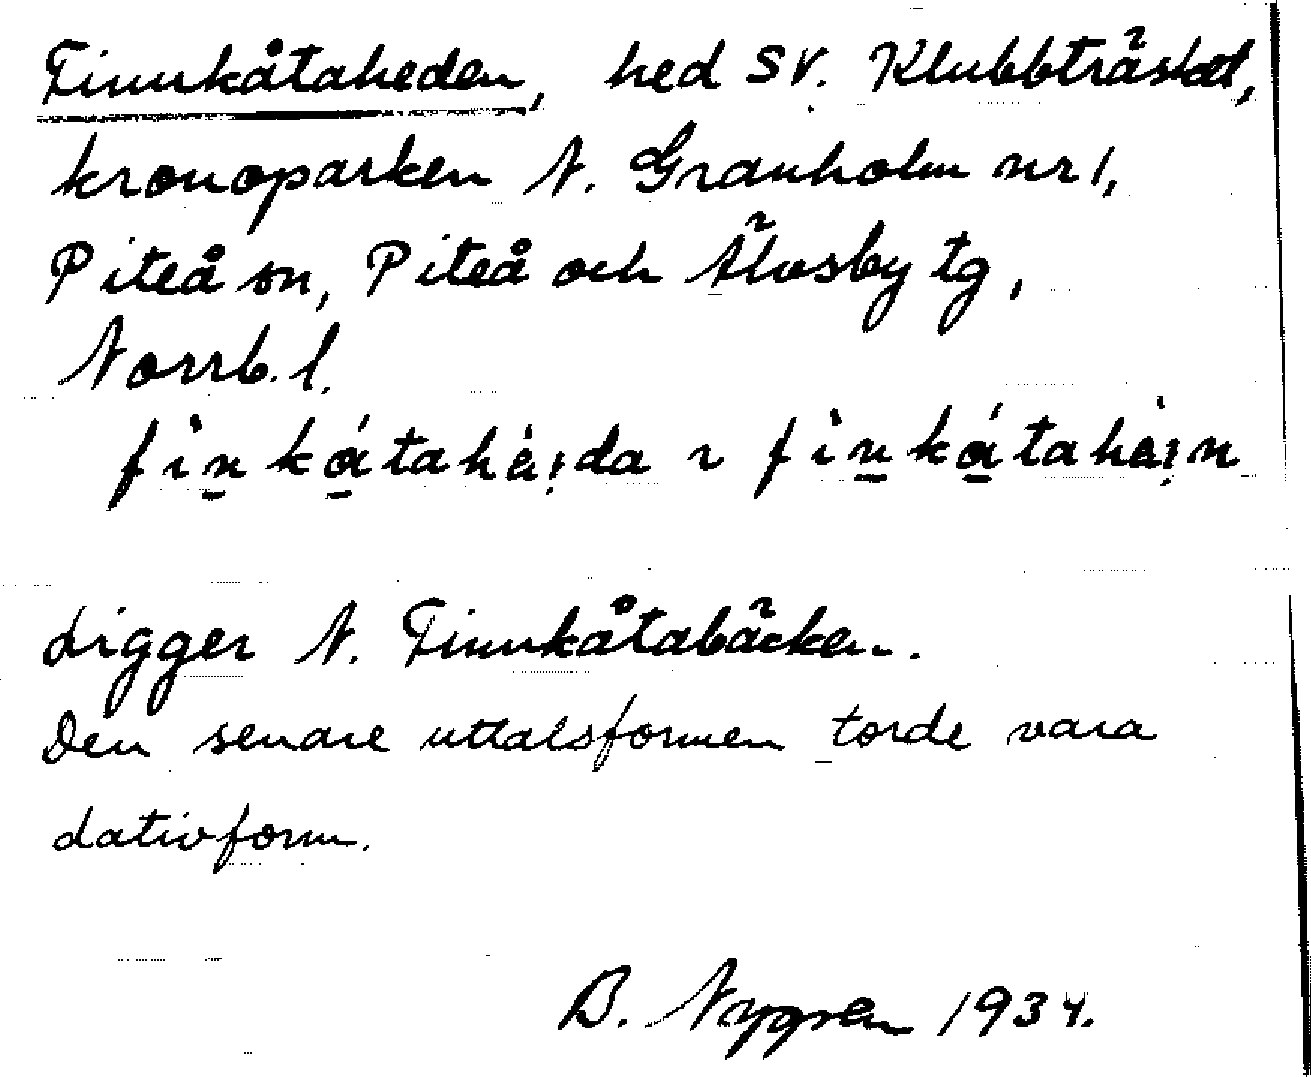 Finnkåtaheden, hed SV. Klubbträsket,
kronoparken N. Granholm nr 1,
Piteå sn, Piteå och Älvsby tg,
Norrb. l.
fi̠nkátahèi̯da ~ fi̠nkátahèi̯n
Ligger N. Finnkåtabäcken.
Den senare uttalsformen torde vara
dativform.
B. Nygren 1934.